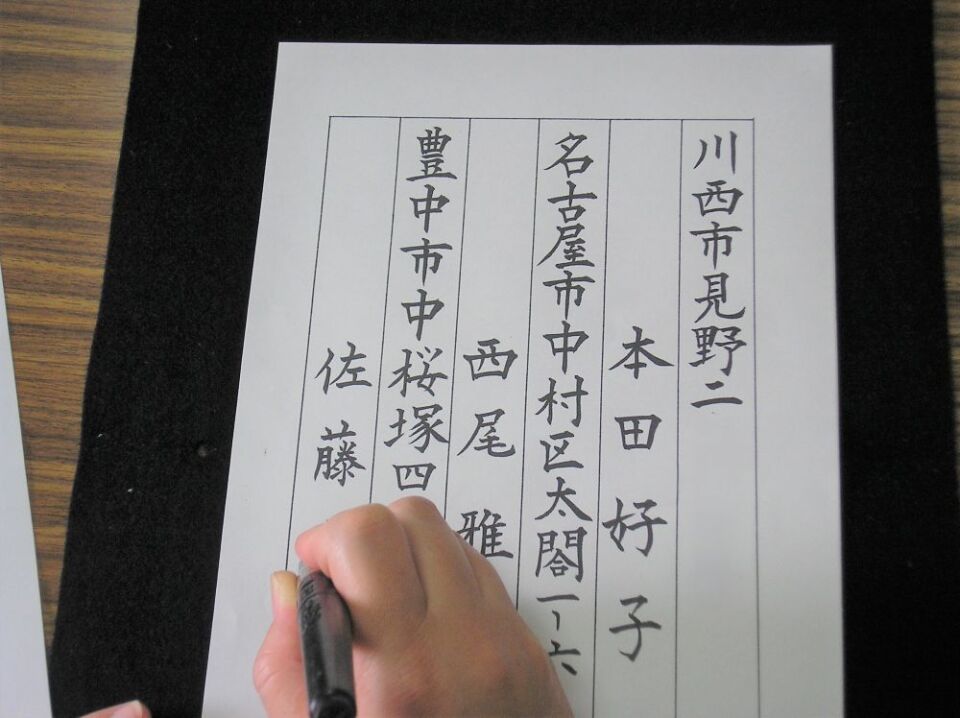 川西市見野二
本田好子
名古屋市中村区太閤一-六
西尾雅
豊中市中桜塚四
佐藤